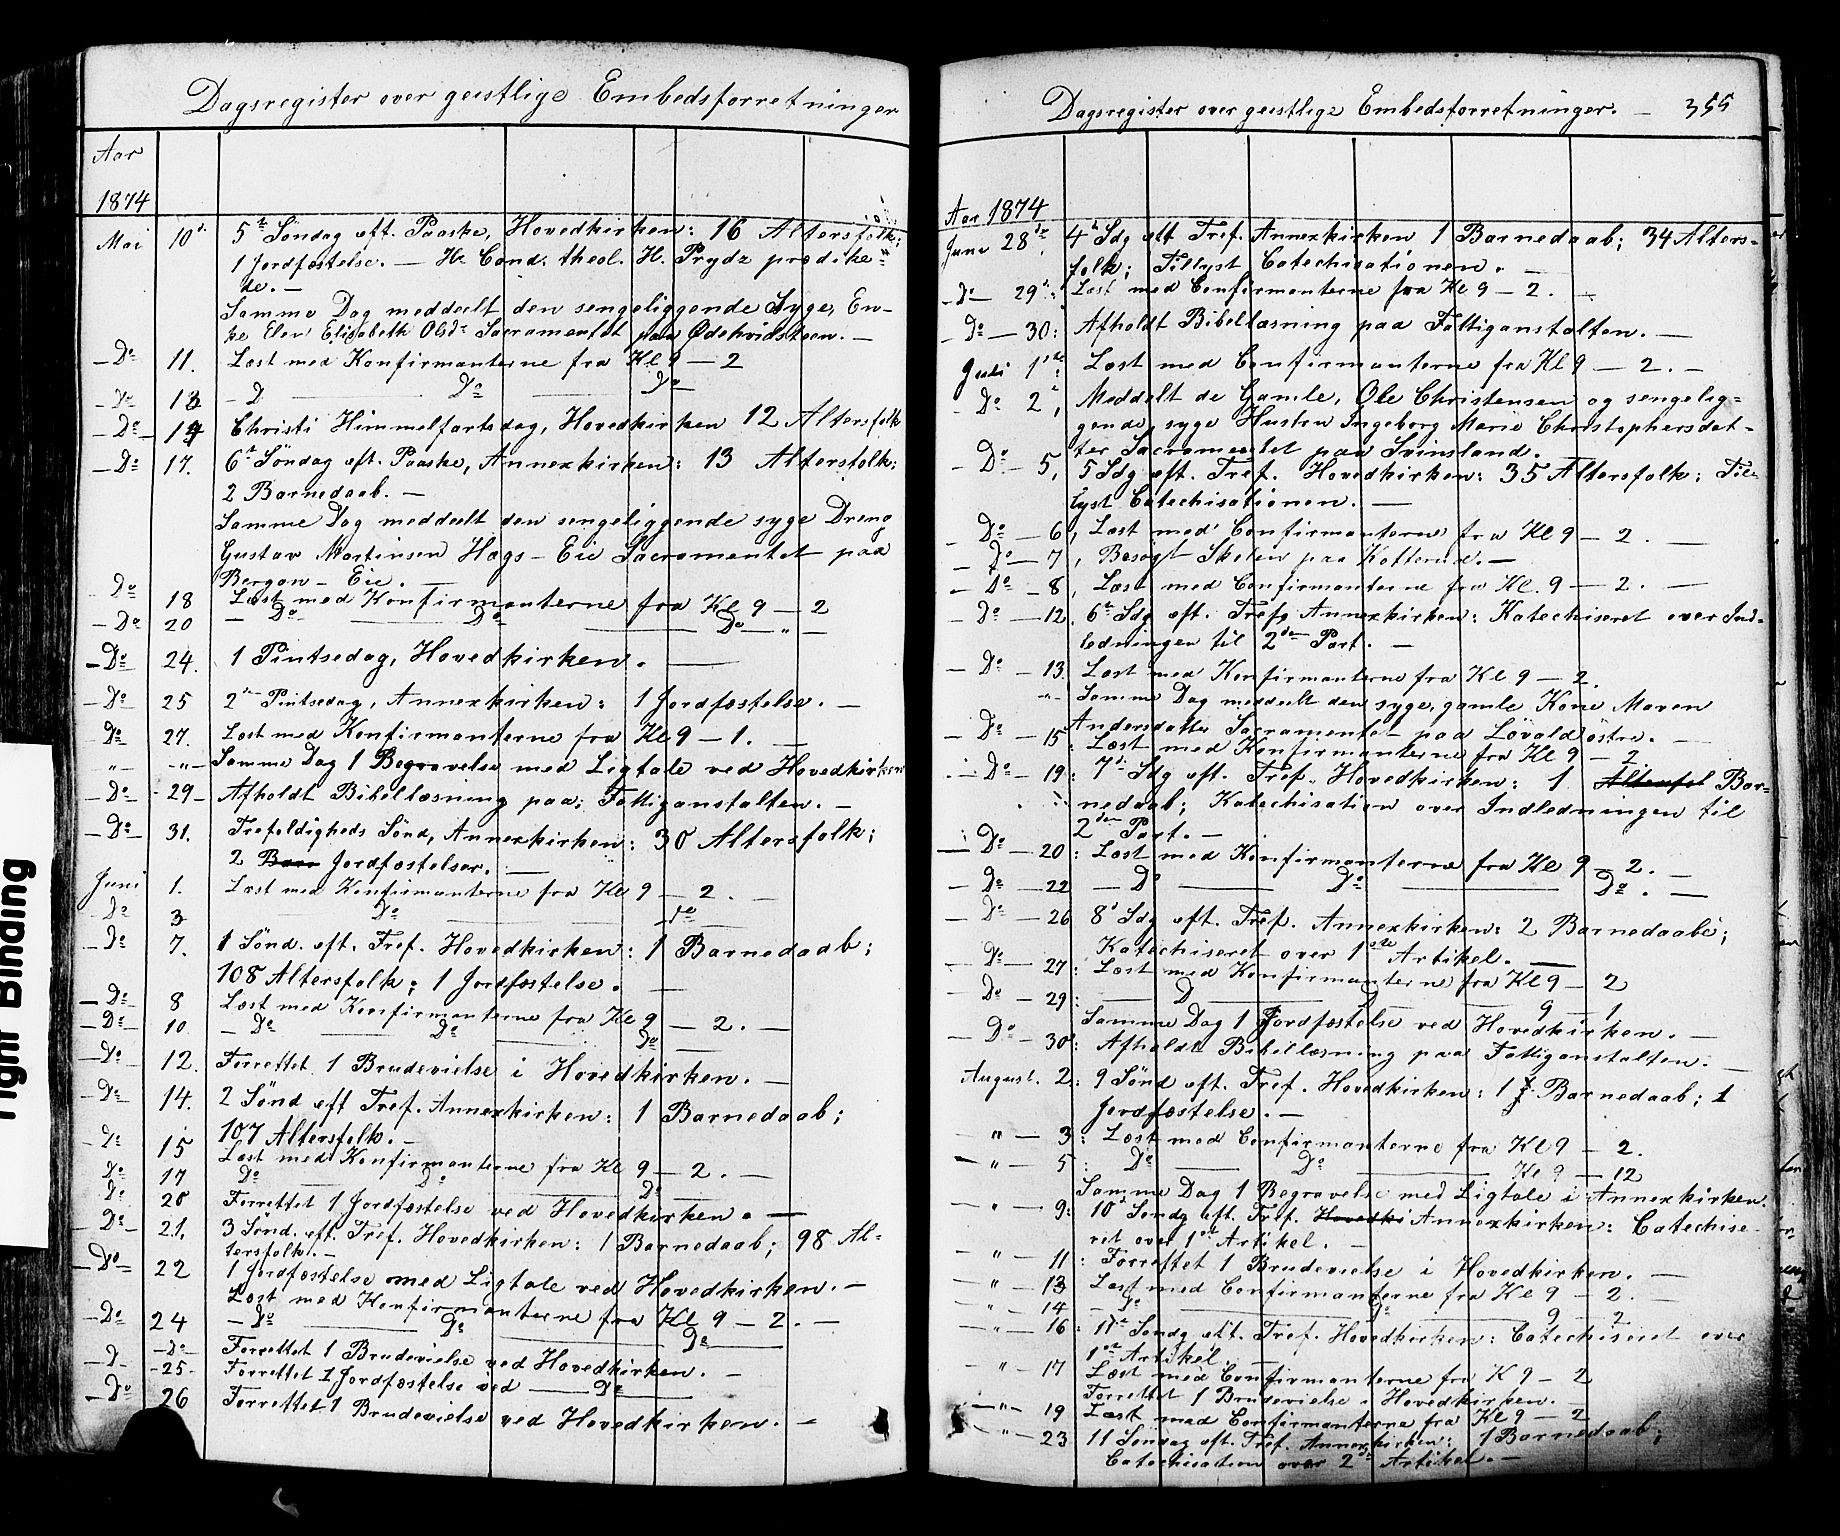 Dagsregister over geistlige Embedsforretninger
Aar
1874
Mai 10de 5te Søndag eft. Paaske, Hovedkirken: 16 Altersfolk;
1 Jordfæstelse. — Hr Cand. theol. H. Prydz prædike-
de. —
Samme Dag meddeelt den sengeliggende Syge, En-
ke Elen Elisabeth Olsdr Sacramentet paa Ødekvidsteen. —
— Do 11. Læst med Konfirmanterne fra Kl 9 — 2
— Do 13 — D — Do — Do
— Do — 14 Christi Himmelfartsdag, Hovedkirken 12 Altersfolk
— Do 17. 6te Søndag eft. Paaske, Annexkirken: 13 Altersfolk;
2 Barnedaab. —
Samme Dag meddeelt den sengeliggende syge Dreng
Gustav Martinsen Hags-Eie Sacramentet paa
Bergan-Eie. —
Do 18 Læst med Konfirmanterne fra Kl. 9 — 2
— Do 20 — Do — Do — Do — " —
— Do 24. 1 Pintsedag, Hovedkirken. —
— Do — 25 2den Pintsedag, Annexkirken: 1 Jordfæstelse. —
Do 27. Læst med Konfirmanterne fra Kl 9 — 1. —
" — " — Samme Dag 1 Begravelse med Ligtale ved Hovedkirken
— Do — 29 — Afholdt Bibellæsning paa Fattiganstalten. —
— Do — 31. Trefoldigheds Sønd, Annexkirken: 30 Altersfolk;
2 Barn Jordfæstelser. —
Juni 1. Læst med Konfirmanterne fra Kl 9 — 2. —
Do 3 Do — do
— Do 7. 1 Sønd. eft. Tref. Hovedkirken: 1 Barnedaab;
108 Altersfolk; 1 Jordfæstelse. —
— Do — 8 Læst med Konfirmanterne fra Kl 9 — 2. —
— Do — 10. — Do — Do — Do —
— Do — 12. Forrettet 1 Brudevielse i Hovedkirken. —
— Do 14. 2 Sønd eft Tref. Annexkirken: 1 Barnedaab;
107 Altersfolk. —
— Do 15 Læst med Konfirmanterne fra Kl 9 — 2. —
Do 17 Do — Do — Do —
Do 20 Forrettet 1 Jordfæstelse ved Hovedkirken. —
— Do — 21. 3 Sønd. eft. Tref. Hovedkirken: 1 Barnedaab; 98 Al-
tersfolk. —
— Do — 22 1 Jordfæstelse med Ligtale ved Hovedkirken. —
Læst med Konfirmanterne fra Kl 9 — 2. —
— Do — 24 — Do — Do — Do —
— Do — Forrettet 1 Brudevielse ved Hovedkirken. —
— D — 25 — Forrettet 1 Jordfæstelse ved — Do —
— Do 26 Forrettet 1 Brudevielse ved Hovedkirken. —
Dagsregister over geistlige Embedsforretninger. — 355
Aar 1874
Juni 28de 4de Sdg eft Tref. Annexkirken 1 Barnedaab; 34 Alters-
folk; Tillyst Catechisationen. —
— Do — 29de: Læst med Confirmanterne fra Kl 9 — 2. —
— Do — 30: Afholdt Bibellæsning paa Fattiganstalten. —
Juli 1ste: Læst med Confirmanterne fra Kl 9 — 2. —
— Do 2, Meddelt de Gamle, Ole Christensen og sengelig-
gende, syge Hustru Ingeborg Marie Christophersdat-
ter Sacramentet paa Svinsland.
— Do — 5, 5 Sdg eft. Tref. Hovedkirken: 35 Altersfolk; Til-
lyst Catechisationen. —
— Do — 6, Læst med Confirmanterne fra Kl 9 — 2. —
— Do — 7, Besøgt Skolen paa Kotterud. —
— Do — 8, Læst med Confirmanterne fra Kl. 9 — 2. —
— Do — 12. 6te Sdg eft. Tref Annexkirken: Katechiseret over Ind-
ledningen til 2den Part. —
— Do — 13. Læst med Konfirmanterne fra Kl 9 — 2.
" Samme Dag meddeelt den syge, gamle Kone Maren
Andersdatter Sacramentet paa Løvald østre. —
— Do — 15: Læst med Konfirmanterne fra Kl 9 — 2
— Do — 19: 7de Sdg eft. Tref. Hovedkirken: 1 Altersfol Bar-
nedaab; Katechisation over Indledningen til
2den Part. —
— Do — 20: Læst med Konfirmanterne fra Kl 9 — 2. —
— Do — 22 — Do — Do — Do. —
— Do — 26 8de Sdg eft. Tref. Annexkirken: 2 Barnedaabe;
Katechiseret over 1ste Artikel. —
— Do — 27: Læst med Konfirmanterne fra Kl 9 — 2
— Do — 29: — D — D — 9 — 1
Samme Dag 1 Jordfæstelse ved Hovedkirken. —
— Do — 30: Afholdt Bibellæsning paa Fattiganstalten. —
August. 2: 9 Sønd eft. Tref. Hovedkirken: 1 J. Barnedaab; 1
Jordfæstelse. —
" — 3: Læst med Confirmanterne fra Kl 9 — 2.
— " — 5: Do — Do — Kl 9 — 12
Samme Dag 1 Begravelse med Ligtale i Annexkirken.
" — 9: 10de Søndg eft. Tref. Hovedki Annexkirken: Catechise-
ret over 1ste Artikel. —
— " 11: Forrettet 1 Brudevielse i Hovedkirken. —
— " — 13 Læst med Confirmanterne fra Kl 9 — 2. —
— " — 14 — Do — Do — 9 — 2
— " — 16: 11te Søndg eft. Tref. Hovedkirken: Catechiseret over
1ste Artikel. —
— " — 17 Læst med Confirmanterne fra K 9 — 2
Forrettet 1 Brudevielse i Hovedkirken. —
— " — 19 Læst med Confirmanterne fra Kl 9 — 2
— " — 23 11 Søndag eft. Tref. Annexkirken: 1 Barnedaab;
Catechisation over 2den Artikel. —
Tight Binding